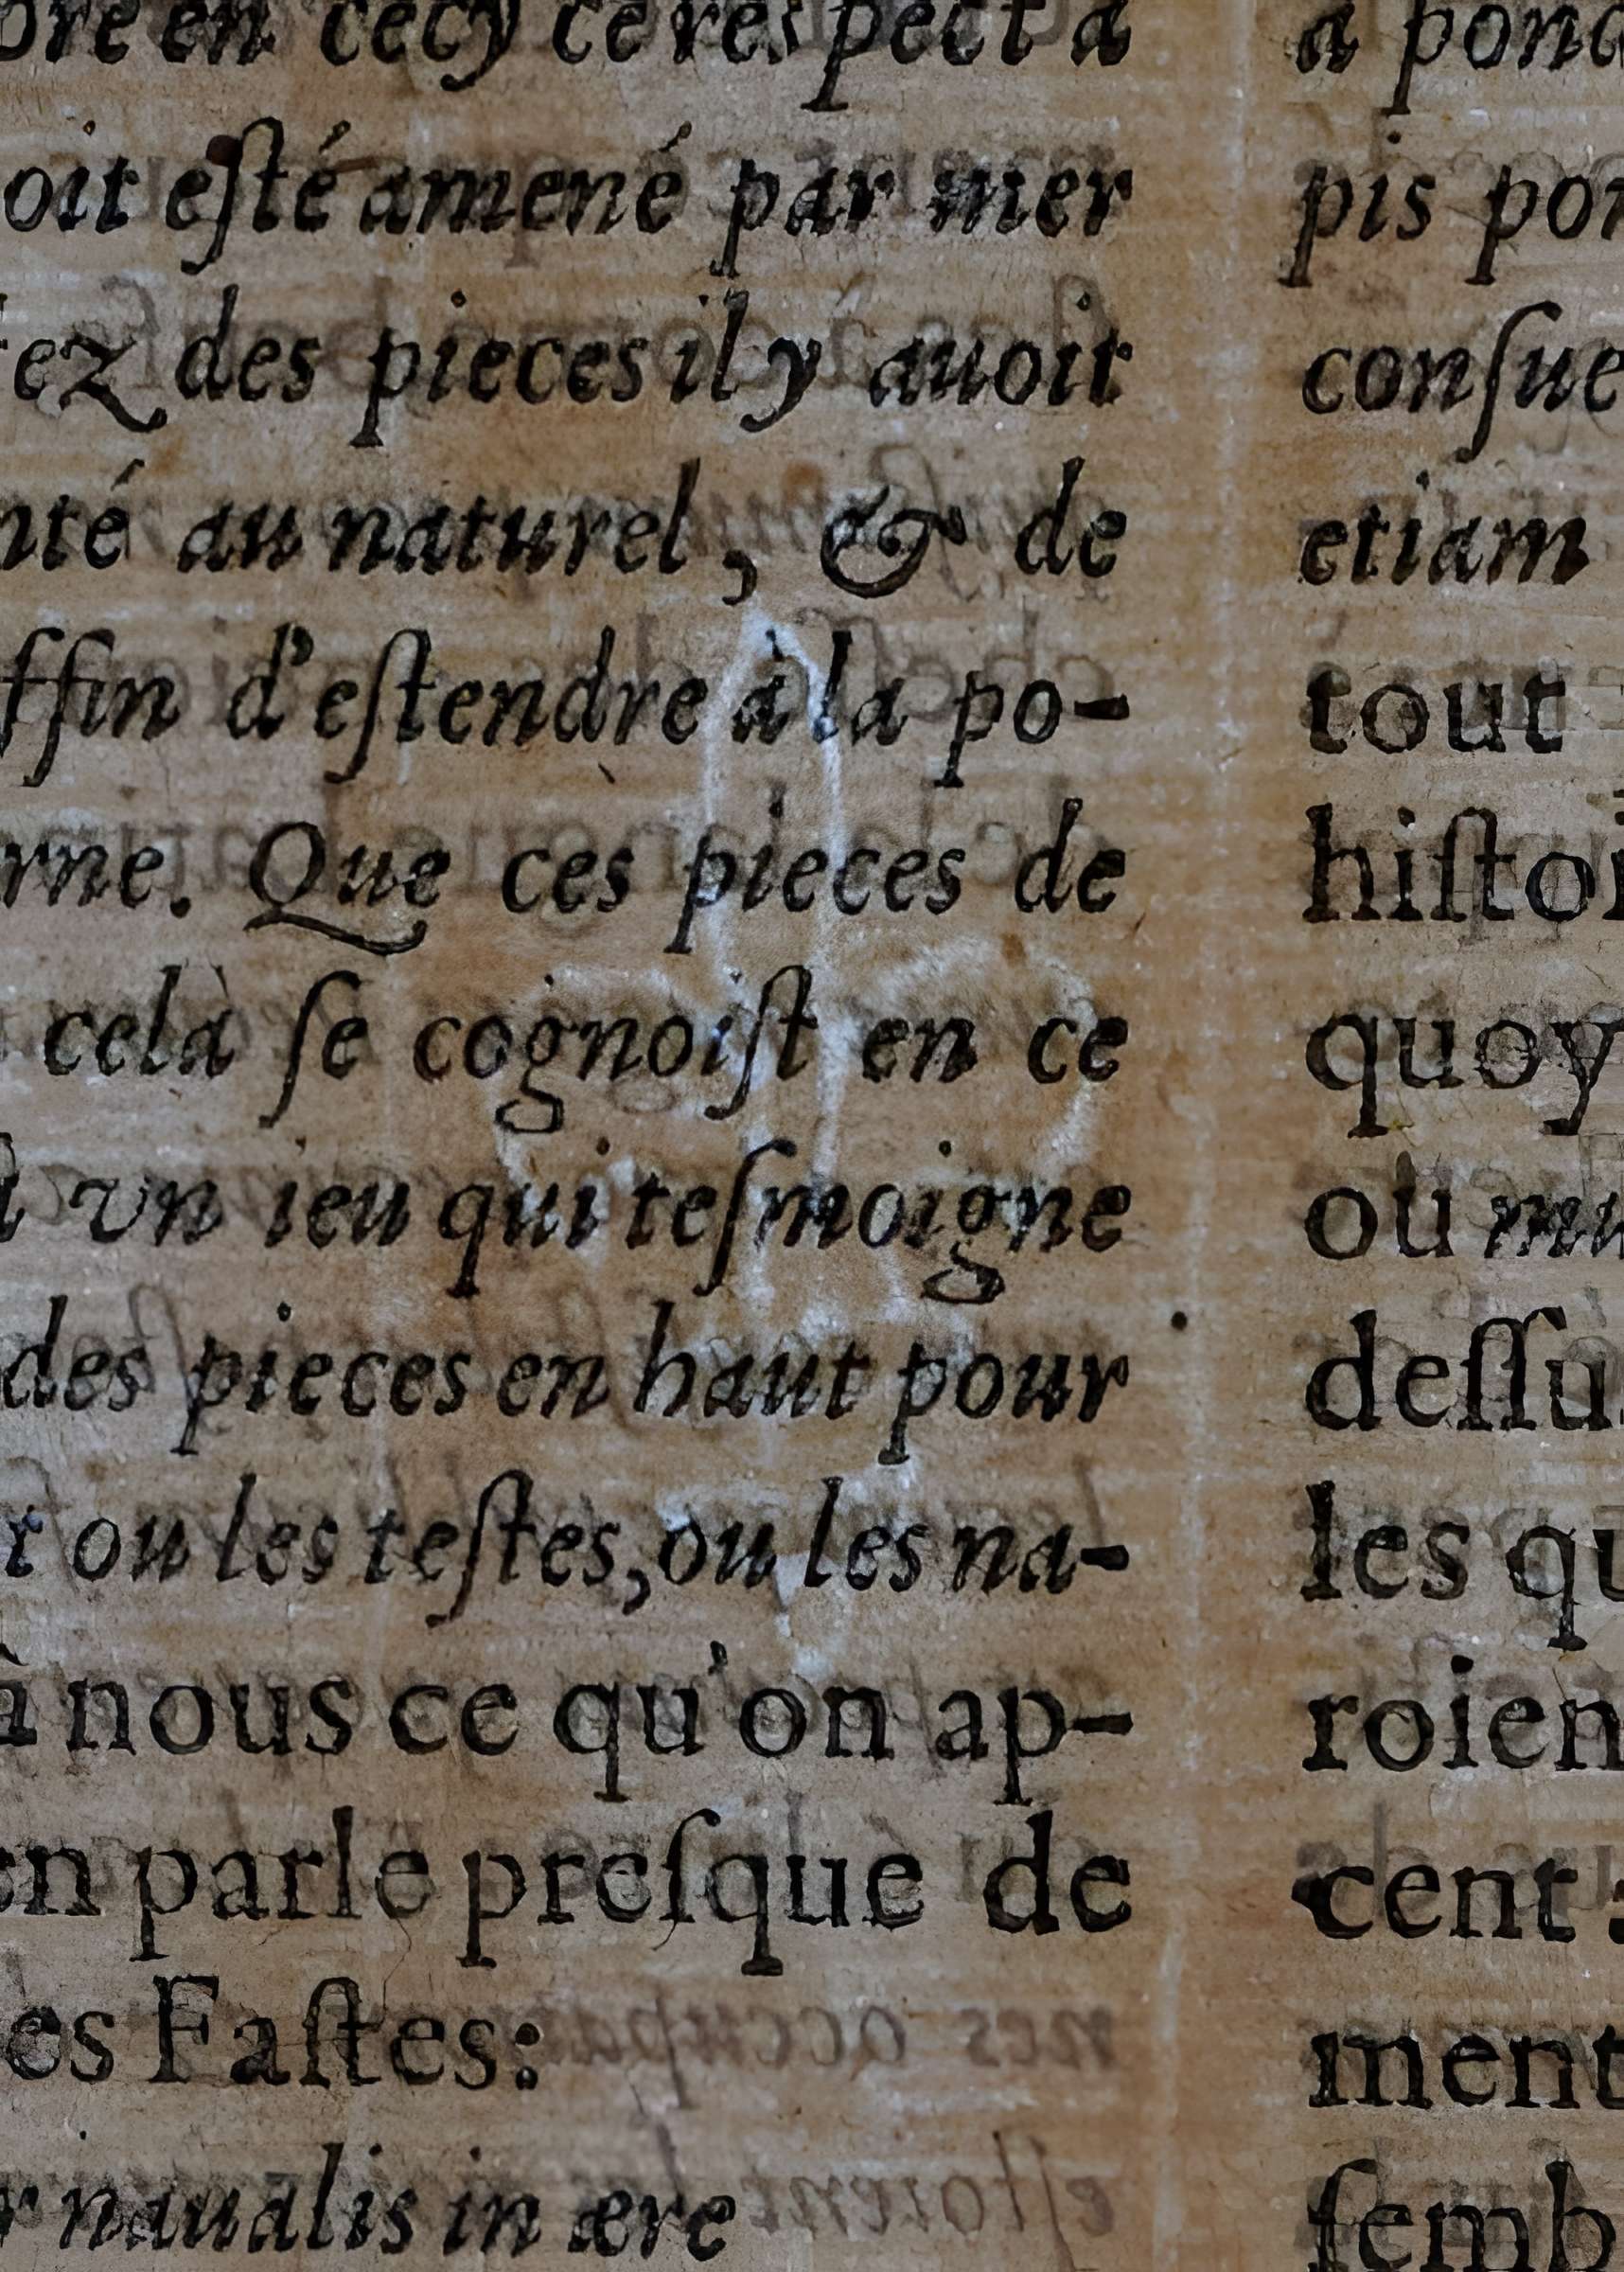 en cecy ce respect a
oit eſté amené par mer
ez des pieces il y auoit
nté au naturel, & de
ffin d'eſtendre à la po-
rne. Que ces pieces de
celà ſe cognoiſt en ce
vn ieu qui teſmoigne
des pieces en haut pour
r ou les teſtes, ou les na-
à nous ce qu'on ap-
en parle preſque de
es Faſtes:
r naualis in ære
a pond
pis pon
conſue
etiam
tout
hiſtoi
quoy
ou mu
deſſu
les qu
roien
cent
ment
ſemb